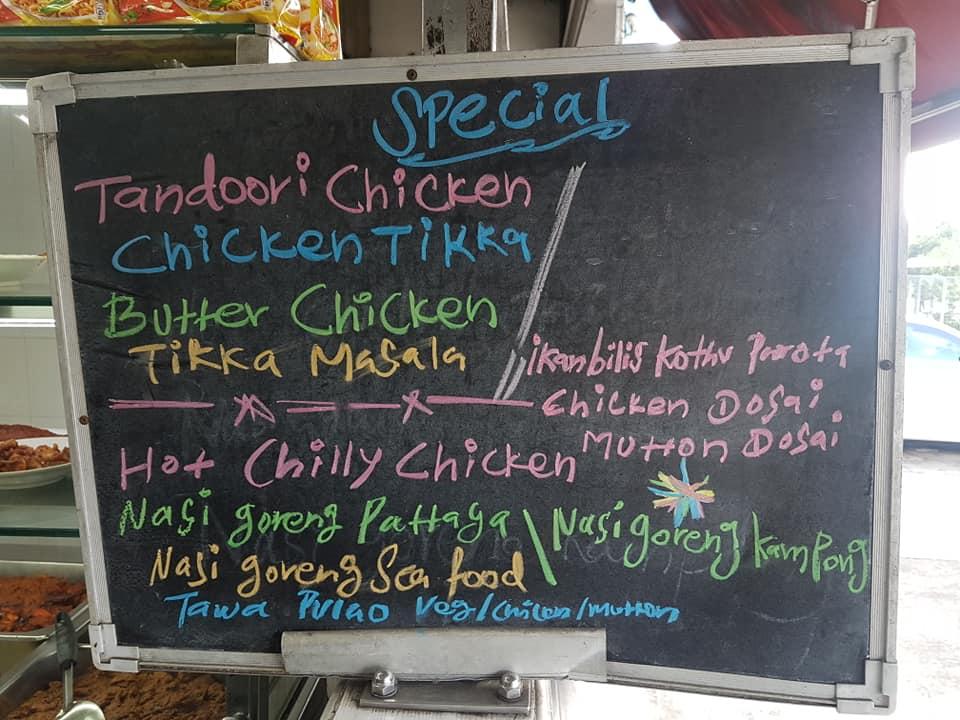 Special
Tandoori Chicken
Chicken Tikka
Butter Chicken
Tikka Masala
Ikanbilis Kothu Parota
Chicken Dosai
Mutton Dosai
Hot Chilly Chicken
Nasi goreng Pattaya \ Nasi goreng Kampong
Nasi goreng Sea food
Tawa Pulao Veg/Chicen/mutton